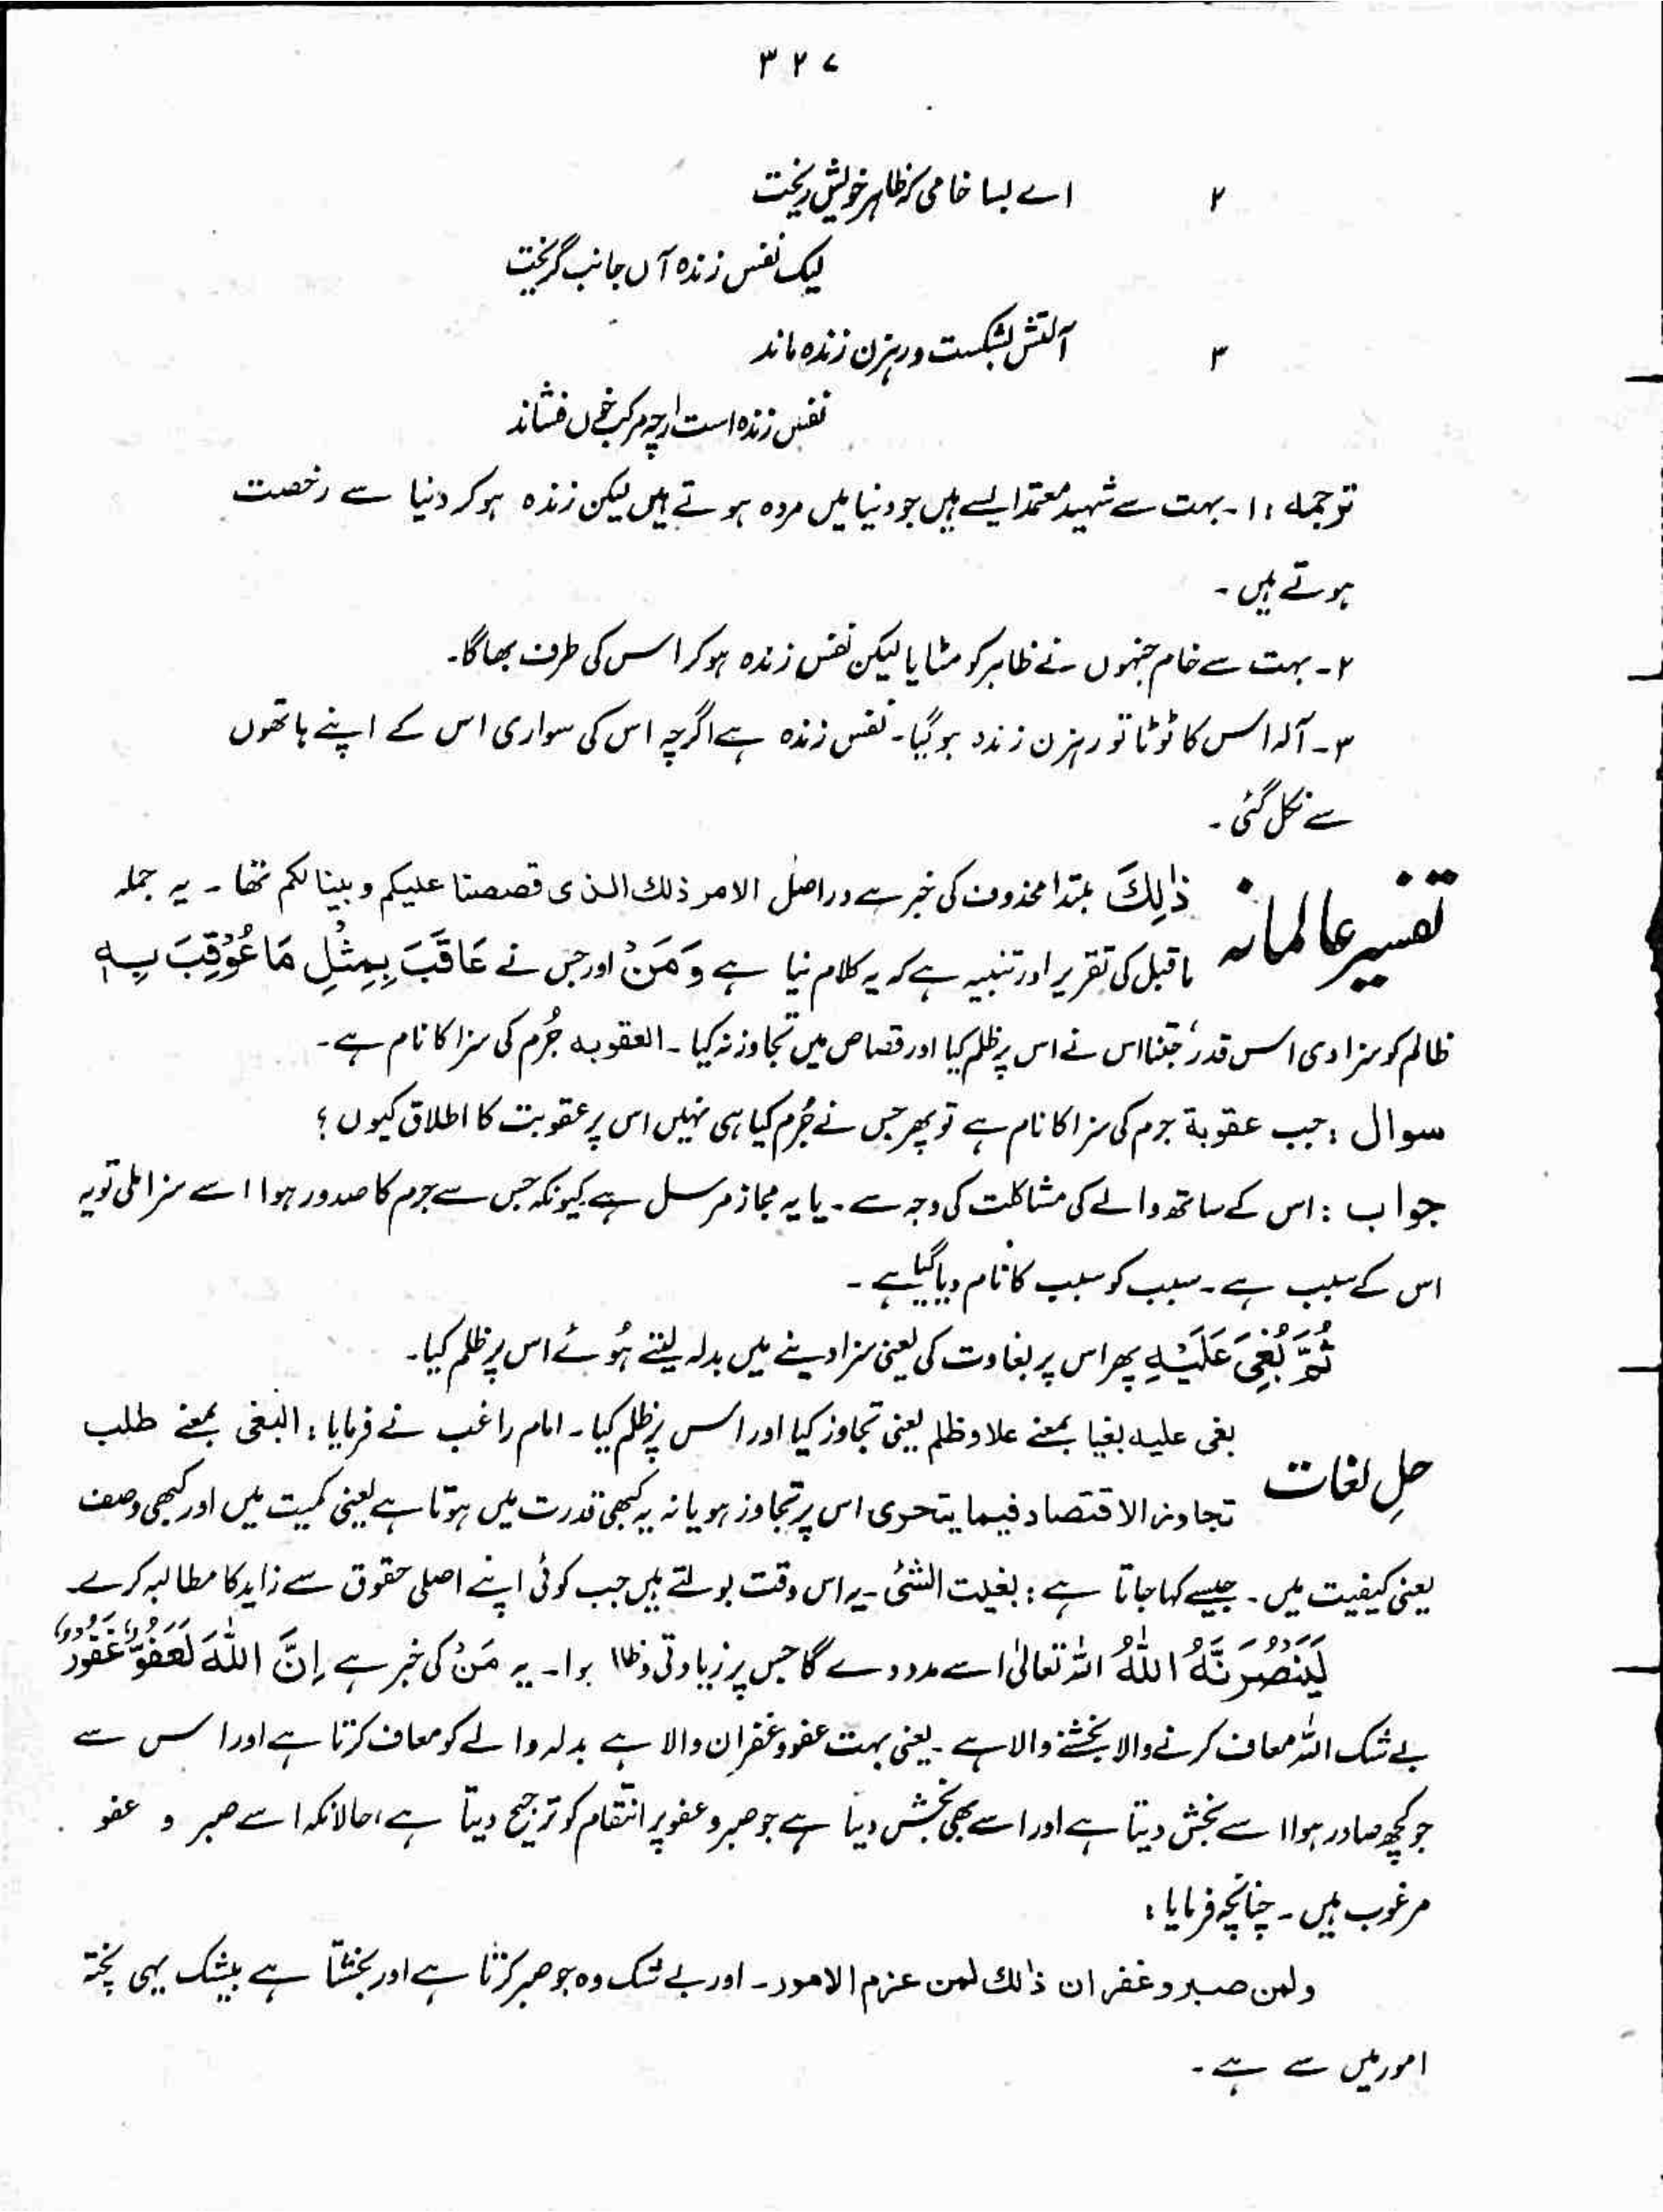 ۳۲۷
۲ اے بسا خامی کہ ظاہر خویش ریخت
لیک نفس زندہ آں جانب گریخت
۳ آلتش بشکست ورہزن زندہ ماند
نفس زندہ است ارچہ مرکب خوں فشاند
ترجمہ :۱۔ بہت سے شہید معتمد ایسے ہیں جو دنیا میں مردہ ہوتے ہیں لیکن زندہ ہو کر دنیا سے رخصت
ہوتے ہیں ۔
۲۔ بہت سے خام جنہوں نے ظاہر کو مٹایا لیکن نفس زندہ ہو کر اس کی طرف بھاگا۔
۳۔ آلہ اس کا ٹوٹا تو رہزن زندہ ہو گیا۔ نفس زندہ ہے اگرچہ اس کی سواری اس کے اپنے ہاتھوں
سے نکل گئی ۔
تفسیر عالمانہ ذٰلِکَ مبتدا محذوف کی خبر ہے دراصل الامر ذلك الذی قصصنا علیکم وبینا لکم تھا ۔ یہ جملہ
ماقبل کی تقریر اور تنبیہ ہے کہ یہ کلام نیا ہے وَمَنْ اور جس نے عَاقَبَ بِمِثْلِ مَا عُوْقِبَ بِہٖ
ظالم کو سزا دی اس قدر جتنا اس نے اس پر ظلم کیا اور قصاص میں تجاوز نہ کیا ۔ العقوبہ جُرم کی سزا کا نام ہے ۔
سوال : جب عقوبة جرم کی سزا کا نام ہے تو پھر جس نے جُرم کیا ہی نہیں اس پر عقوبت کا اطلاق کیوں ؟
جواب : اس کے ساتھ والے کی مشاکلت کی وجہ سے ۔ یا یہ مجاز مرسل ہے کیونکہ جس سے جرم کا صدور ہوا اسے سزا ملی تو یہ
اس کے سبب ہے ۔ سبب کو سبب کا نام دیا گیا ہے ۔
ثُمَّ بُغِیَ عَلَیْہِ پھر اس پر بغاوت کی یعنی سزا دینے میں بدلہ لیتے ہُوئے اس پر ظلم کیا۔
حلِ لغات بغی علیہ بغیا بمعنے علا وظلم یعنی تجاوز کیا اور اس پر ظلم کیا ۔ امام راغب نے فرمایا : البغی بمعنے طلب
تجاوز الاقتصاد فیما یتحری اس پر تجاوز ہو یا نہ یہ کبھی قدرت میں ہوتا ہے یعنی کمیت میں اور کبھی وصف
یعنی کیفیت میں ۔ جیسے کہا جاتا ہے : بغیت الشئ ۔ یہ اس وقت بولتے ہیں جب کوئی اپنے اصلی حقوق سے زاید کا مطالبہ کرے ۔
لَیَنْصُرَنَّہُ اللّٰہُ اللہ تعالیٰ اسے مدد دے گا جس پر زیادتی و ظلم ہوا۔ یہ مَنْ کی خبر ہے اِنَّ اللّٰہَ لَعَفُوٌّ غَفُوْرٌ
بے شک اللہ معاف کرنے والا بخشنے والا ہے ۔ یعنی بہت عفو و غفران والا ہے بدلہ والے کو معاف کرتا ہے اور اس سے
جو کچھ صادر ہوا اسے بخش دیتا ہے اور اسے بھی بخش دیتا ہے جو صبر و عفو پر انتقام کو ترجیح دیتا ہے، حالانکہ اسے صبر و عفو
مرغوب ہیں ۔ چنانچہ فرمایا :
ولمن صبر وغفر ان ذٰلك لمن عزم الامور۔ اور بے شک وہ جو صبر کرتا ہے اور بخشتا ہے بیشک یہی پختہ
امور میں سے ہے ۔